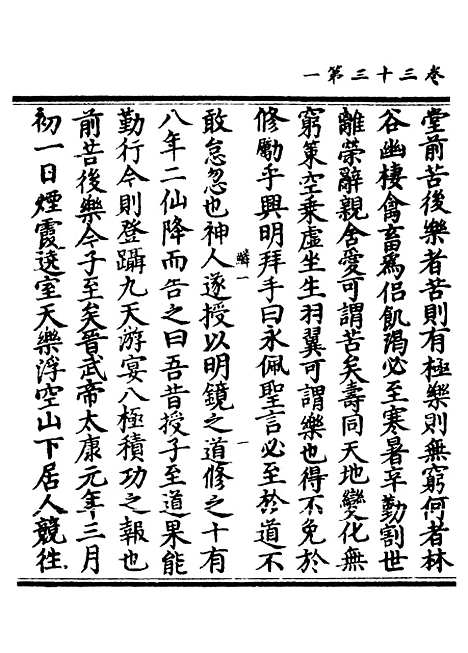 卷三十三第一
堂前苦後樂者苦則有極樂則無窮何者林
谷幽棲禽畜爲侶飢渴必至寒暑辛勤割世
離榮辭親舍愛可謂苦矣壽同天地變化無
窮策空乗虛坐生羽翼可謂樂也得不免於
修勵乎興明拜手曰永佩聖言必至於道不
敢怠忽也神人遂授以明鏡之道修之十有
麟一
一
八年二仙降而告之曰吾昔授子至道果能
勤行今則登躡九天游宴八極積功之報也
前苦後樂今子至矣晉武帝太康元年三月
初一日煙霞遶室天樂浮空山下居人競往